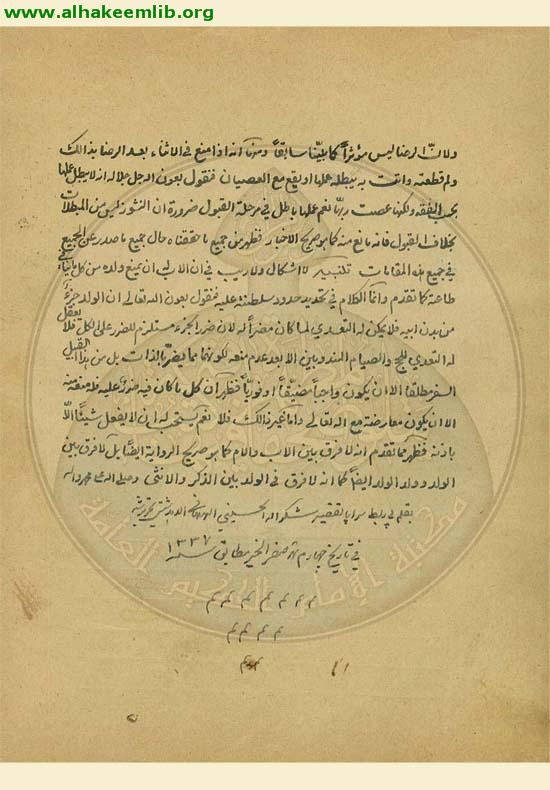 www.alhakeemlib.org
ولان الرضا ليس مؤثراً كما بيّنا سابقاً ومنها انه اذا منع في الاثناء بعد الرضا بذالك
ولم قطعته واتت به يبطله عملها او يقع مع العصيان فنقول بعون الرجل جلاله انه لا يبطل عملها
بحسب الفقه ولكنها عصت ربّها نعم عملها باطل في مرحلة القبول ضرورة ان النشوز ليس من المبطلات
بخلاف القبول فانه مانع منه كما هو صريح الاخبار فظهر من جميع ما حققناه حال جميع ما صدر عن الجميع
في جميع هذه المقامات تنبيه لا اشكال ولا ريب في ان الاب له ان يمنع ولده من كل ما ينافي
طاعته كما تقدم وانما الكلام في تحديد حدود سلطنته عليه فنقول بعون الله تعالى ان الولد جزء
من بدن ابيه فلا يمكن له التعدي لما كان مضراً له لان ضرر الجزء مستلزم للضرر على الكل فلا يعقل
له التعدي للحج والصيام المندوبين الا بعد عدم منعه لكونهما مما يضر بالذات بل من هذا القبيل
السفر مطلقا الا ان يكون واجباً مضيّقاً او فوريّاً فظهر ان كل ما كان فيه ضرر عليه فله منعه منه
الا ان يكون معارضة مع الله تعالى واما غير ذالك فلا نعم يستحب له ان لا يفعل شيئاً الا
باذنه فظهر مما تقدم انه لا فرق بين الاب والام كما هو صريح الرواية ايضاً بل لا فرق بين
الولد وولد الولد ايضاً كما انه لا فرق في الولد بين الذكر والانثى وصلى الله على محمد واله
بقلم سراپا تقصير شكر الله الحسيني
في تاريخ چهارم شهر صفر الخير مطابق سنة ١٣٣٧
م م م م م م م
م م م م
م م
مكتبة الإمام الحكيم العامة